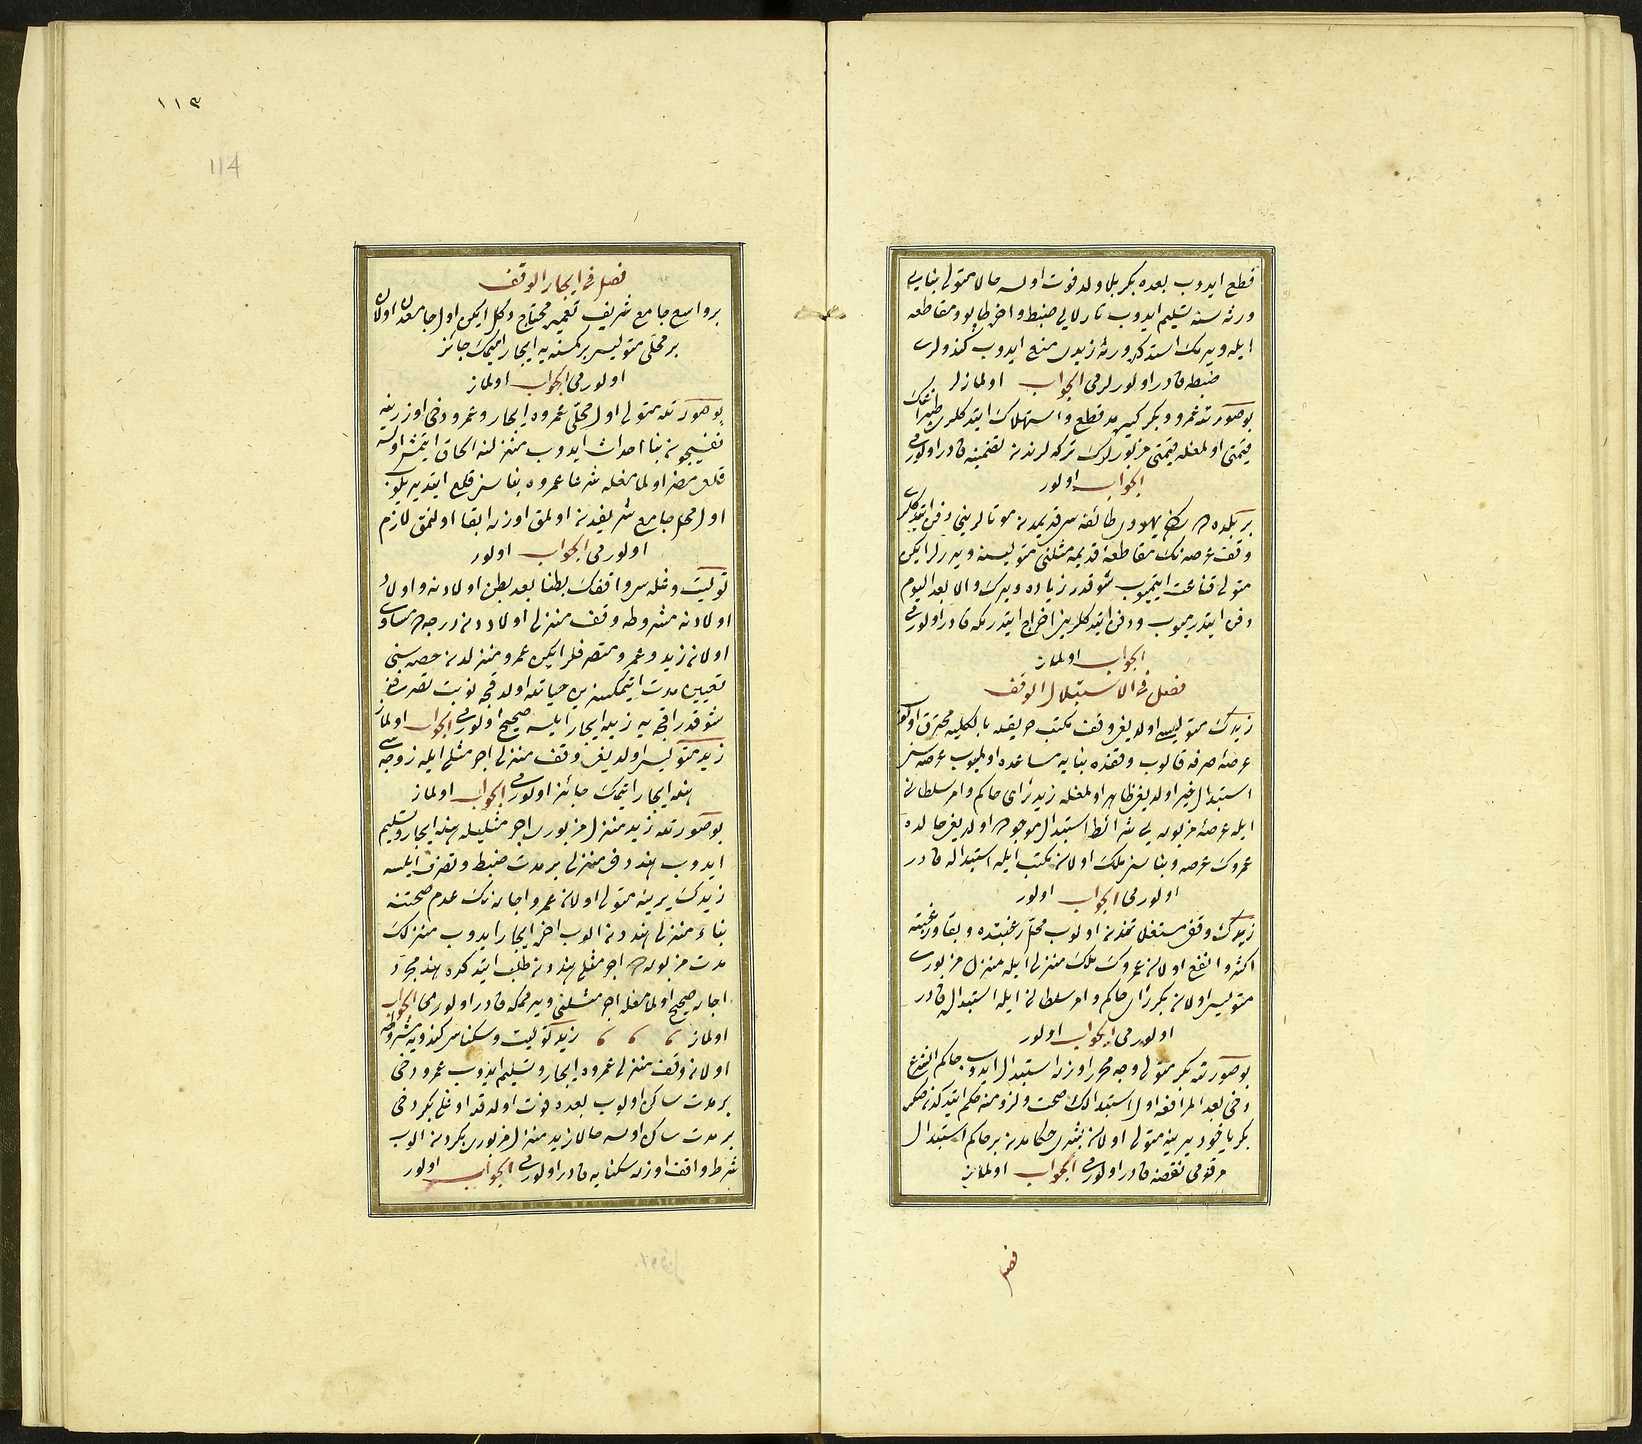 قطع ايدوب بعده بكر بلا ولد فوت اولسه حالا متولى بنايى
ورثه سنه تسليم ايدوب تارلايى ضبط و اخره طاپو و مقاطعه
ايله ويرمك استدكده ورثه زيدى منع ايدوب كندولرى
ضبطه قادر اولورلر مى الجواب اولمازلر
بو صورتده عمرو و بكر كيدر مد قطع و استهلاك ايتدكلرى
قيمتى اولمغله قيمتى مزبورلرك تركه لرندن تضمينه قادر اولور مى
الجواب اولور
بر بلده ده ساكن يهودى طائفه سى قديمدن موتالرينى دفن ايتدكلرى
وقف عرصه نك مقاطعه قديمه مثلنى متوليسنه ويررلر ايكن
متولى قناعت ايتميوب شو قدر زياده ويرك والا بعد اليوم
دفن ايتدرميوب و دفن ايتدكلريڭز اخراج ايتدررمكه قادر اولور مى
الجواب اولماز
فصل فى الاستبدال الوقف
زيدك متوليسى اولديغى وقف مكتب حريقده بالكليه محترق اولوب
عرصه صرفه قالوب وقفنده بنايه مساعده اولميوب عرصه سنى
استبدال خير اولديغى ظاهر اولمغله زيد رأى حاكم و امر سلطانى
ايله عرصه مزبوره يى شرائط استبدال موجوده اولديغى حالده
عمروك عرصه و بناسى ملك اولان مكتب ايله استبداله قادر
اولور مى الجواب اولور
زيدك وقف مستغل تحدن اولوب محل رغبتده و بقا و رغبته
اكثر و انفع اولان عمروك ملك منزلى ايله منزل مزبورى
متوليسى اولان بكر رأى حاكم و امر سلطانى ايله استبداله قادر
اولور مى الجواب اولور
بو صورتده بكر متولى وجه محرر اوزره استبدال ايدوب حاكم الشرع
دخى بعد المرافعه اول استبدالك صحت و لزومنه حكم ايتدكدنصكره
بكر ياخود يرينه متولى اولان بشر حكامدن بر حاكم استبدال
مرقومى نقضه قادر اولور مى الجواب اولماز
فصل
١١٣
114
فصل فى ايجار الوقف
بر واسع جامع شريف تعميره محتاج دكل ايكن اول جامعده اولان
بر محلى متوليسى بر كمسنه يه ايجار ايتمك جائز
اولور مى الجواب اولماز
بو صورتده متولى اول محلى عمروه ايجار و عمرو دخى اوزرينه
نفسيچون بنا احداث ايدوب منزلنه الحاق ايتمش اولسه
قلعى مضر اولمامغله شرعا عمروه بناسنى قلع ايتديريلوب
اول محل جامع شريفدن اولمق اوزره ابقا اولنمق لازم
اولور مى الجواب اولور
توليت و غله سى واقفك بطنا بعد بطن اولادنه و اولاد
اولادنه مشروطه وقف منزلى اولاددن درجه ده مساوى
اولان زيد و عمرو متصرفلر ايكن عمرو منزلدن حصه سنى
تعيين مدت ايتمكسزين حياتده اولدقجه نوبت تصرفنى
شو قدر اقچه يه زيده ايجار ايلسه صحيح اولور مى الجواب اولماز
زيد متوليسى اولديغى وقف منزلى اجر مثلى ايله زوجه سى
هنده ايجار ايتمك جائز اولور مى الجواب اولماز
بو صورتده زيد منزل مزبورى اجر مثليله هنده ايجار و تسليم
ايدوب هند دخى منزلى بر مدت ضبط و تصرف ايلسه
زيدك يرينه متولى اولان عمرو اجاره نك عدم صحتنه
بناء منزلى هنددن الوب اخره ايجار ايدوب منزلك
مدت مزبوره ده اجر مثلى هنددن طلب ايتدكده هند مجرد
اجاره صحيح اولمامغله اجر مثلنى ويرممكه قادر اولور مى الجواب
اولماز زيد توليت و سكناسى كندويه مشروطه
اولان وقف منزلى عمروه ايجار و تسليم ايدوب عمرو دخى
بر مدت ساكن اولوب بعده فوت اولدقده اوغلى بكر دخى
بر مدت ساكن اولسه حالا زيد منزل مزبورى بكردن الوب
شرط واقف اوزره سكنايه قادر اولور مى الجواب اولور